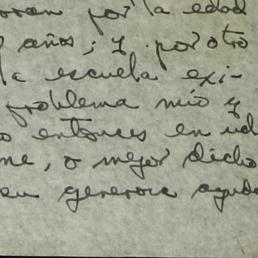 por la edad
años; y por otro
la escuela exi-
problema mío y
entonces en ud
me, o mejor dicho
su generosa ayuda